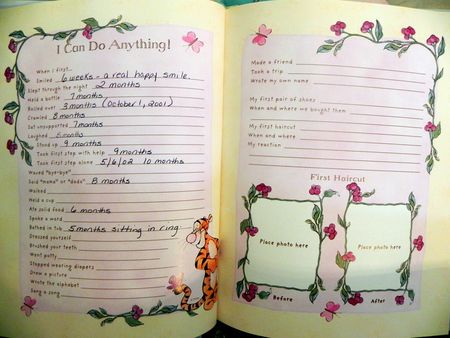 I Can Do Anything!
When I first:
Smiled 6 weeks - a real happy smile.
Slept through the night 2 months
Held a bottle 7 months
Rolled over 3 months (October 1, 2001)
Crawled 8 months
Sat unsupported 7 months
Laughed 5 months
Stood up 9 months
Took first step with help 9 months
Took first step alone 5/6/02 10 months
Waved "bye-bye"
Said "mama" or "dada" 8 months
Walked
Held a cup
Ate solid food 6 months
Spoke a word
Bathed in tub 5 months sitting in ring
Dressed myself
Brushed your teeth
Went potty
Stopped wearing diapers
Drew a picture
Wrote the alphabet
Sang a song
Made a friend
Took a trip
Wrote my own name
My first pair of shoes
When and where we bought them
My first haircut
When and where
My reaction
First Haircut
Place photo here
Place photo here
Before
After